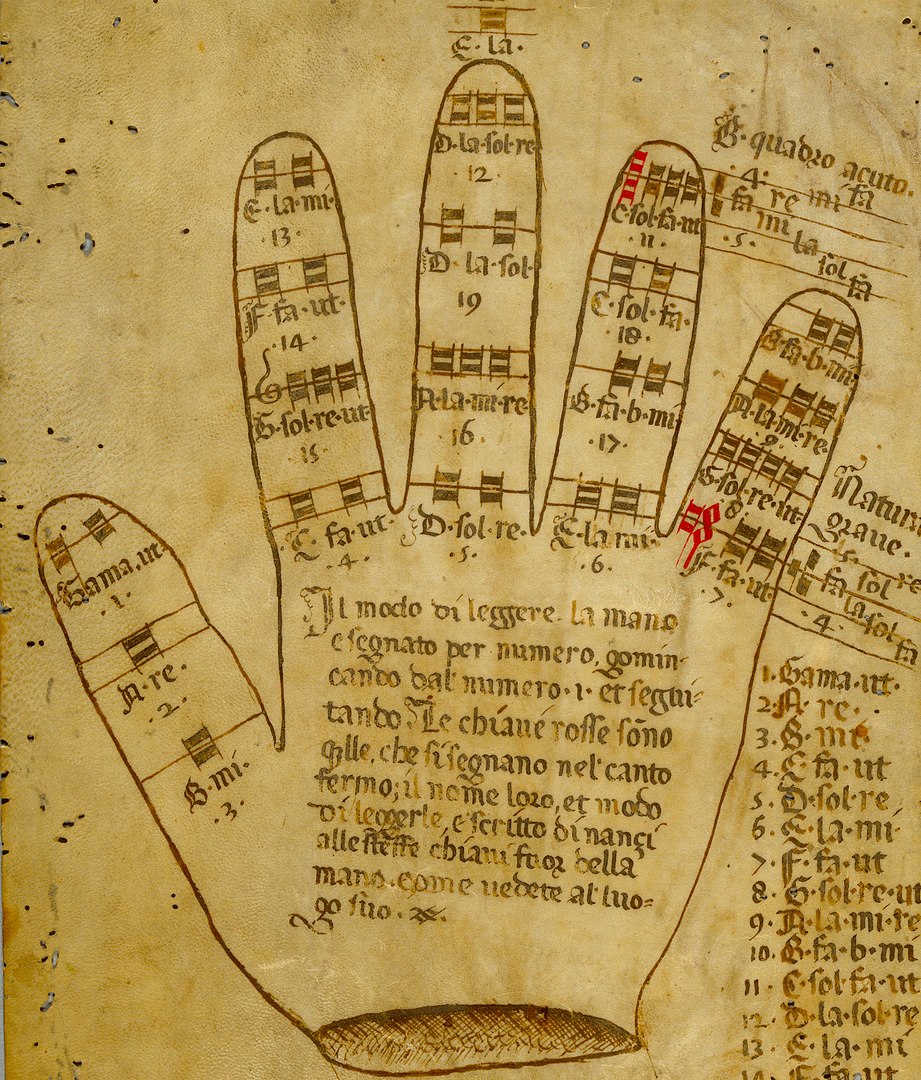 E·la·
D·la·sol·re
12
E·la·mi·
·13·
C·sol·fa·ut
11
B·quadro acuto·
·4·
fa re mi fa
mi la
·5· sol
fa
D·la·sol·
19
F·fa·ut·
·14·
C·sol·fa·
·18·
B·fa·b·mi
G
G·sol·re·ut·
·15·
A·la·mi·re
·16·
B·fa·b·mi
·17·
A·la·mi·re·
·9·
G·sol·re·ut·
·8·
C·fa·ut·
·4·
D·sol·re·
·5·
E·la·mi·
·6·
F·fa·ut·
·7·
Natura
graue·
fa sol re
la sol
·4· fa
Gama·ut·
·1·
A·re·
·2·
B·mi·
·3·
Il modo di leggere la mano
e segnato per numero, gomin-
cando dal numero·1· et segui-
tando Le chiaue rosse sono
qlle, che si segnano nel canto
fermo; il nome loro, et modo
di leggerle, e scritto dinançi
alle stesse chiaui fuor della
mano come uedete al luo=
go suo·
1·Gama·ut·
2·A·re·
3·B·mi·
4·C fa·ut
5·D·sol·re
6·E·la·mi
7·F·fa·ut
8·G·sol·re·ut
9·A·la·mi·re
10·B·fa·b·mi
11·C·sol·fa·ut
12·D·la·sol·re
13·E·la·mi
14·F·fa·ut